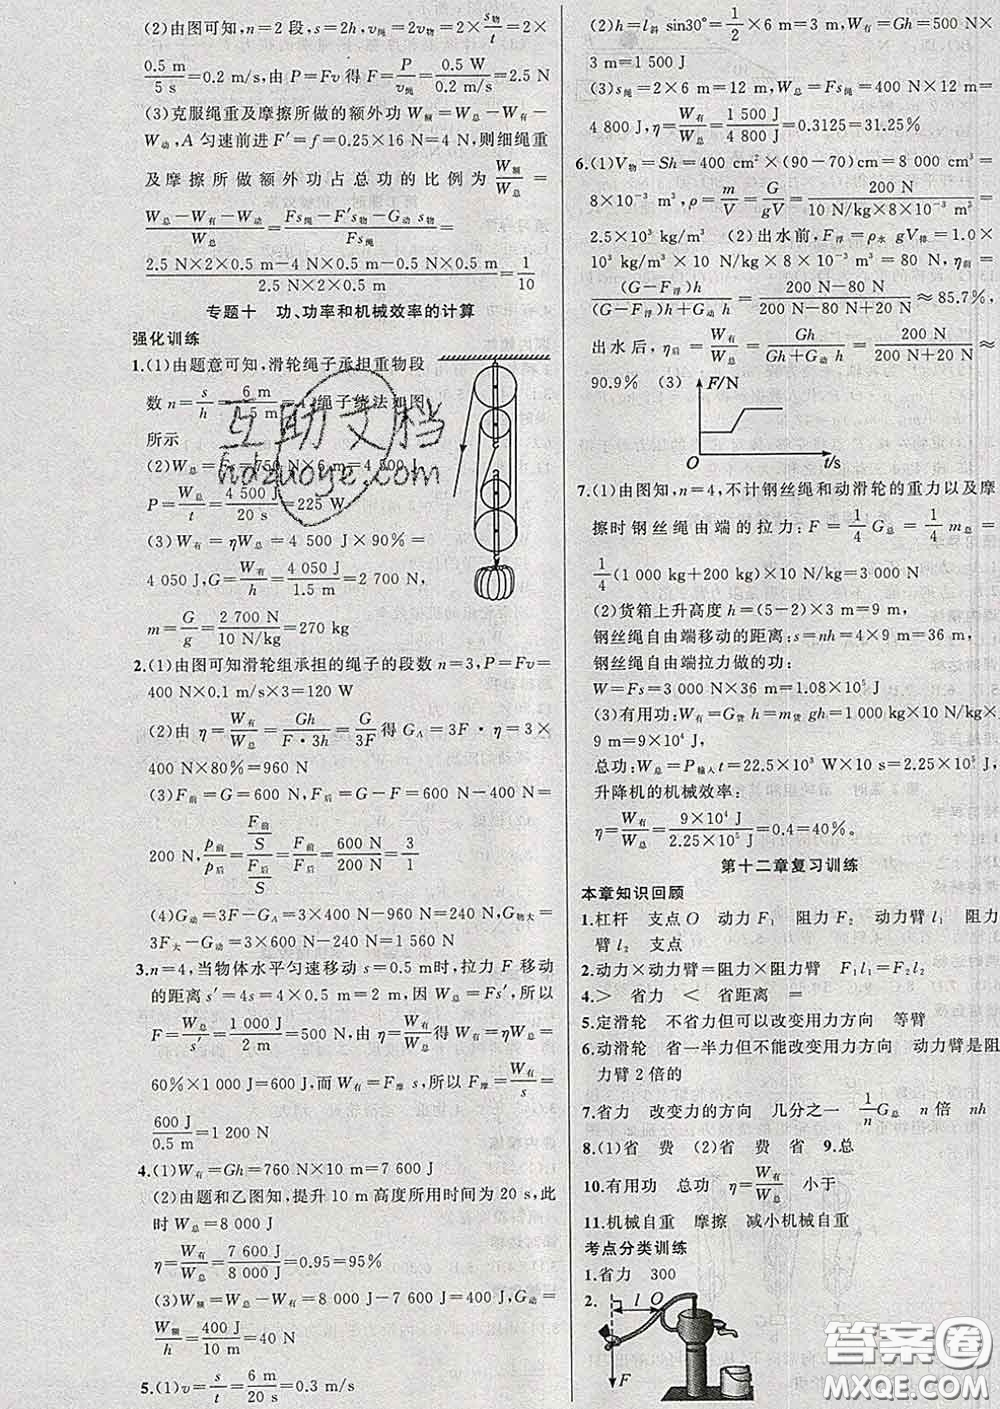 (2)由图可知,n=2段,s绳=2h,v绳=2v物=2×s物/t=2×
0.5 m/5 s=0.2 m/s,由 P=Fv 得 F=P/v绳=0.5 W/0.2 m/s=2.5 N
(3)克服绳重及摩擦所做的额外功W额=W总-W有-
W动,A匀速前进F′=f=0.25×16 N=4 N,则细绳重
及摩擦所做额外功占总功的比例为 W额/W总=
(W总-W有-W动)/W总=(Fs绳-F′s物-G动 s物)/Fs绳=
(2.5 N×2×0.5 m-4 N×0.5 m-2 N×0.5 m)/(2.5 N×2×0.5 m)=1/10
专题十 功、功率和机械效率的计算
强化训练
1.(1)由题意可知,滑轮绳子承担重物段
数 n=s/h=6 m/1.5 m=4,绳子绕法如图
所示
(2)W总=Fs=750 N×6 m=4 500 J
P=W总/t=4 500 J/20 s=225 W
(3)W有=ηW总=4 500 J×90%=
4 050 J,G=W有/h=4 050 J/1.5 m=2 700 N,
m=G/g=2 700 N/10 N/kg=270 kg
2.(1)由图可知滑轮组承担的绳子的段数n=3,P=Fv=
400 N×0.1 m/s×3=120 W
(2)由 η=W有/W总=Gh/F·3h=G/3F得 GA=3F·η=3×
400 N×80%=960 N
(3)F前=G=600 N,F后=G-F=600 N-400 N=
200 N,p前/p后=(F前/S)/(F后/S)=F前/F后=600 N/200 N=3/1
(4)G动=3F-GA=3×400 N-960 N=240 N,G物大=
3F大-G动=3×600 N-240 N=1 560 N
3.n=4,当物体水平匀速移动s=0.5 m时,拉力F移动
的距离s′=4s=4×0.5 m=2 m,因W总=Fs′,所以
F=W总/s′=1 000 J/2 m=500 N,由 η=W有/W总得W有=ηW总=
60%×1 000 J=600 J,而W有=F摩s,所以F摩=W有/s=
600 J/0.5 m=1 200 N
4.(1)W有=Gh=760 N×10 m=7 600 J
(2)由题和乙图知,提升10 m高度所用时间为20 s,此
时W总=8 000 J
η=W有/W总=7 600 J/8 000 J=0.95=95%
(3)W额=W总-W有=8 000 J-7 600 J=400 J,G动=
W额/h=400 J/10 m=40 N
5.(1)v=s/t=6 m/20 s=0.3 m/s
(2)h=l斜 sin30°=1/2×6 m=3 m,W有=Gh=500 N×
3 m=1 500 J
(3)s绳=2×6 m=12 m,W总=Fs绳=400 N×12 m=
4 800 J,η=W有/W总=1 500 J/4 800 J=0.3125=31.25%
6.(1)V物=Sh=400 cm²×(90-70)cm=8 000 cm³=
8×10⁻³ m³,ρ=m/V=G/gV=200 N/(10 N/kg×8×10⁻³ m³)=
2.5×10³ kg/m³ (2)出水前,F浮=ρ水 gV排=1.0×
10³ kg/m³×10 N/kg×8×10⁻³ m³=80 N,η前=
(G-F浮)h/(G-F浮+G动)h=(200 N-80 N)/(200 N-80 N+20 N)≈85.7%,
出水后,η后=W有/W总=Gh/(Gh+G动h)=200 N/(200 N+20 N)≈
90.9% (3)
F/N
O t/s
7.(1)由图知,n=4,不计钢丝绳和动滑轮的重力以及摩
擦时钢丝绳由端的拉力:F=1/4G总=1/4m总=
1/4(1 000 kg+200 kg)×10 N/kg=3 000 N
(2)货箱上升高度h=(5-2)×3 m=9 m,
钢丝绳自由端移动的距离:s=nh=4×9 m=36 m,
钢丝绳自由端拉力做的功:
W=Fs=3 000 N×36 m=1.08×10⁵ J
(3)有用功:W有=G货 h=m货 gh=1 000 kg×10 N/kg×
9 m=9×10⁴ J,
总功:W总=P输入t=22.5×10³ W×10 s=2.25×10⁵ J,
升降机的机械效率:
η=W有/W总=9×10⁴ J/2.25×10⁵ J=0.4=40%。
第十二章复习训练
本章知识回顾
1.杠杆 支点O 动力F₁ 阻力F₂ 动力臂l₁ 阻力
臂l₂ 支点
2.动力×动力臂=阻力×阻力臂 F₁l₁=F₂l₂
4.> 省力 < 省距离 =
5.定滑轮 不省力但可以改变用力方向 等臂
6.动滑轮 省一半力但不能改变用力方向 动力臂是阻
力臂2倍的
7.省力 改变力的方向 几分之一 1/n G总 n倍 nh
8.(1)省 费 (2)省 费 省 9.总
10.有用功 总功 η=W有/W总 小于
11.机械自重 摩擦 减小机械自重
考点分类训练
1.省力 300
2.
l O
F
互助文档
hdzuoye.com
答案圈
MXQE.COM